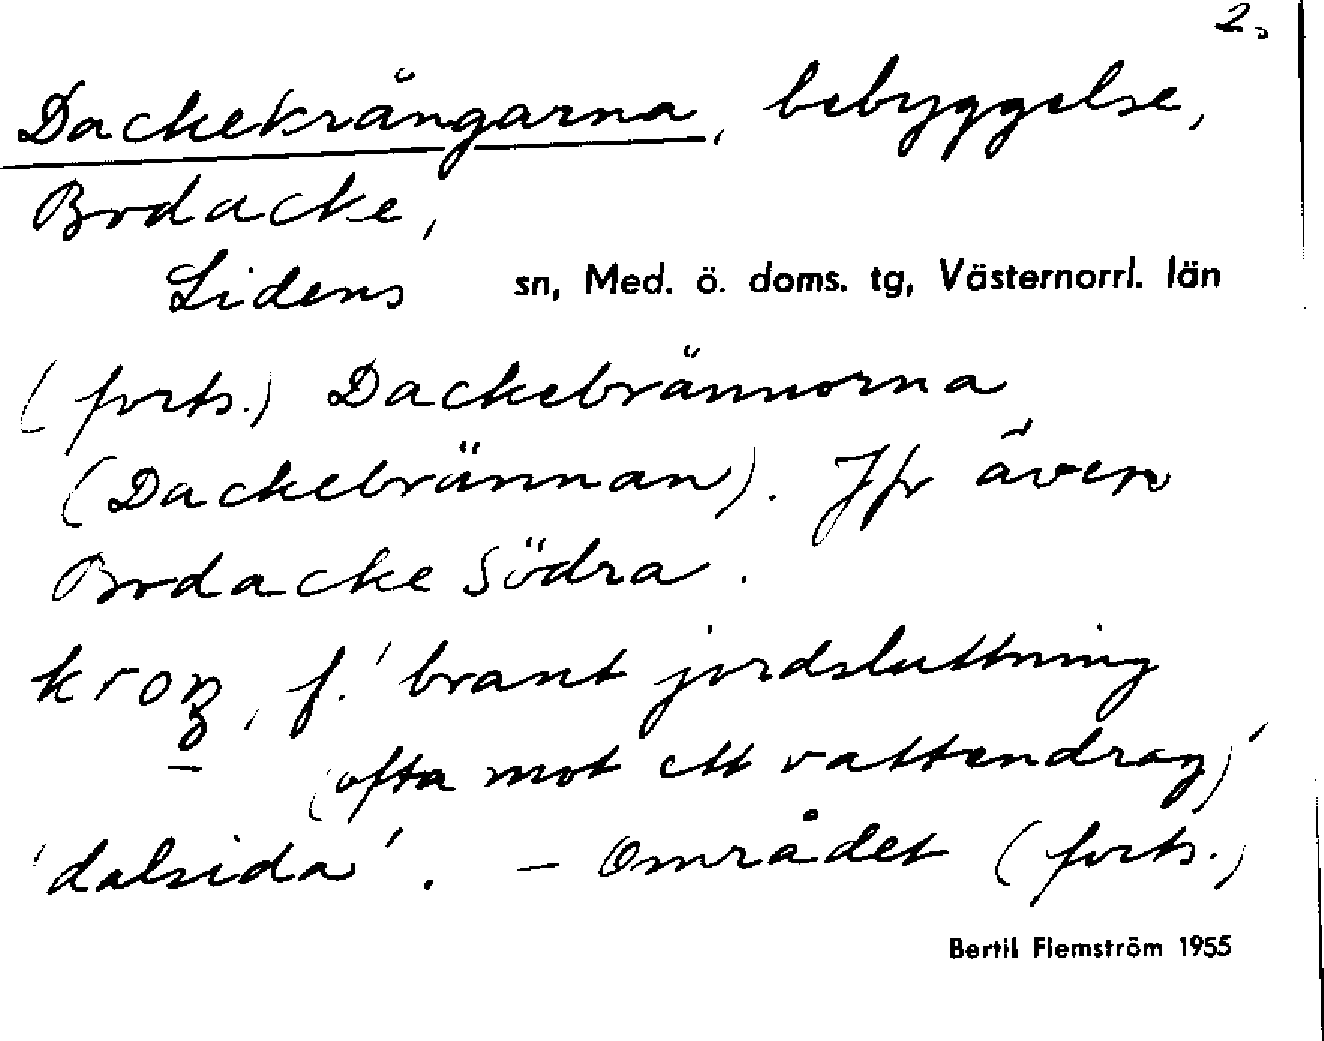 2.
Dackekrångarna, bebyggelse,
Bodacke,
Lidens sn, Med. ö. doms. tg, Västernorrl. län
(forts.) Dackebrännorna
(Dackebrännan). Jfr även
Bodacke Södra.
kroŋ, f. 'brant jordsluttning
(ofta mot ett vattendrag)'
'dalsida'. – Området (forts.)
Bertil Flemström 1955